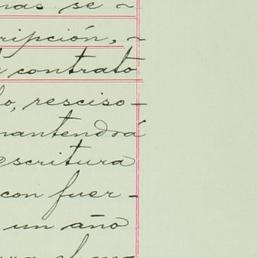 nas se ~
ripción, ~
contrato
lo, resciso-
mantendrá
escritura
con fuer-
un año